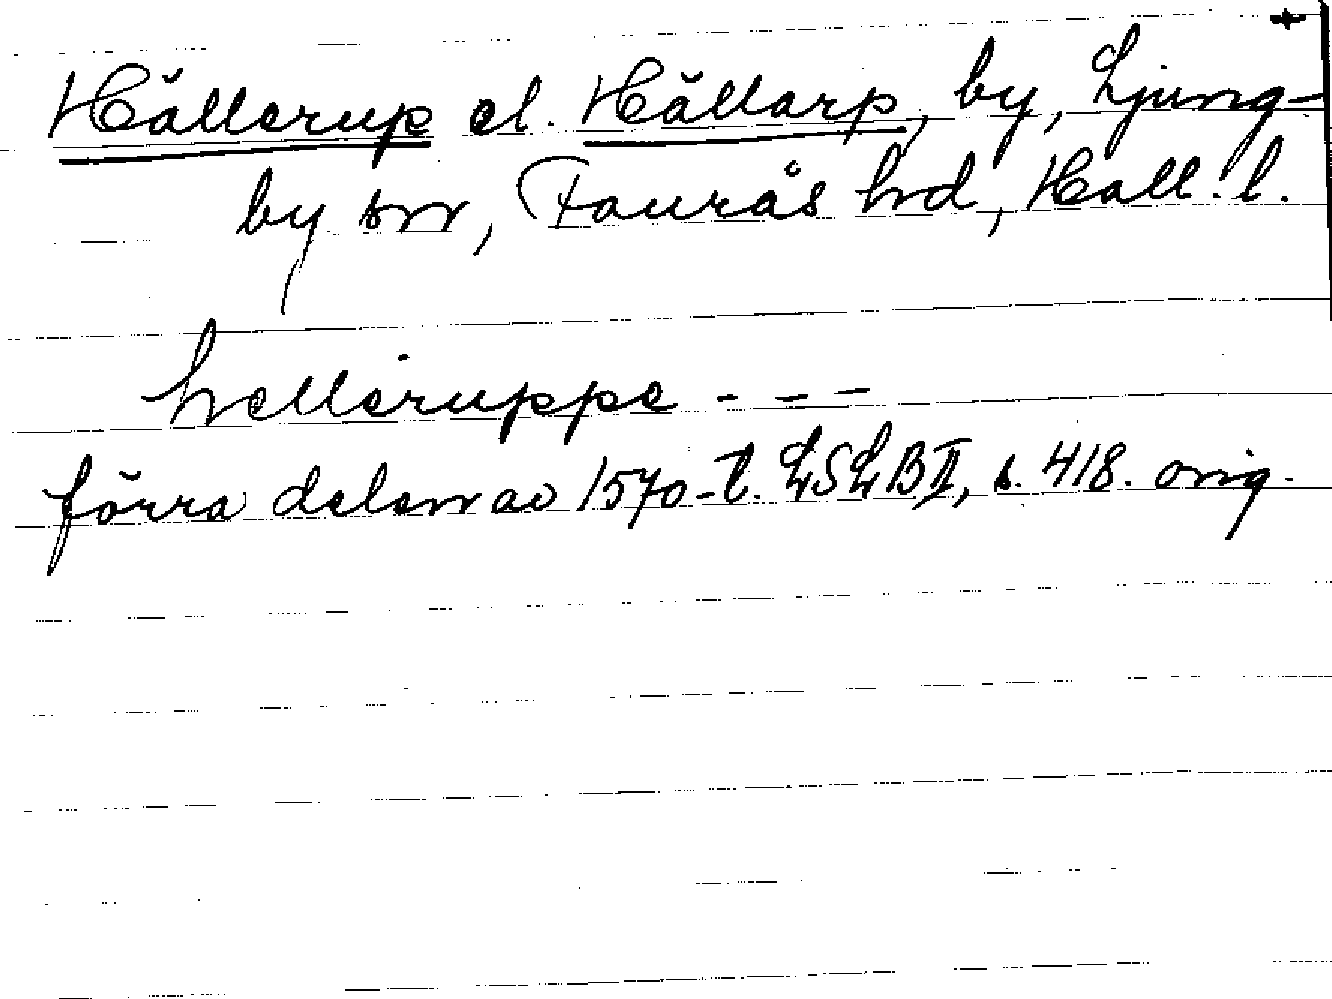 +
Hällerup el. Hällarp, by, Ljung-
by sn, Faurås hd, Hall. l.
helleruppe - - -
förra delen av 1570-t. LSLB II, s. 418. orig.